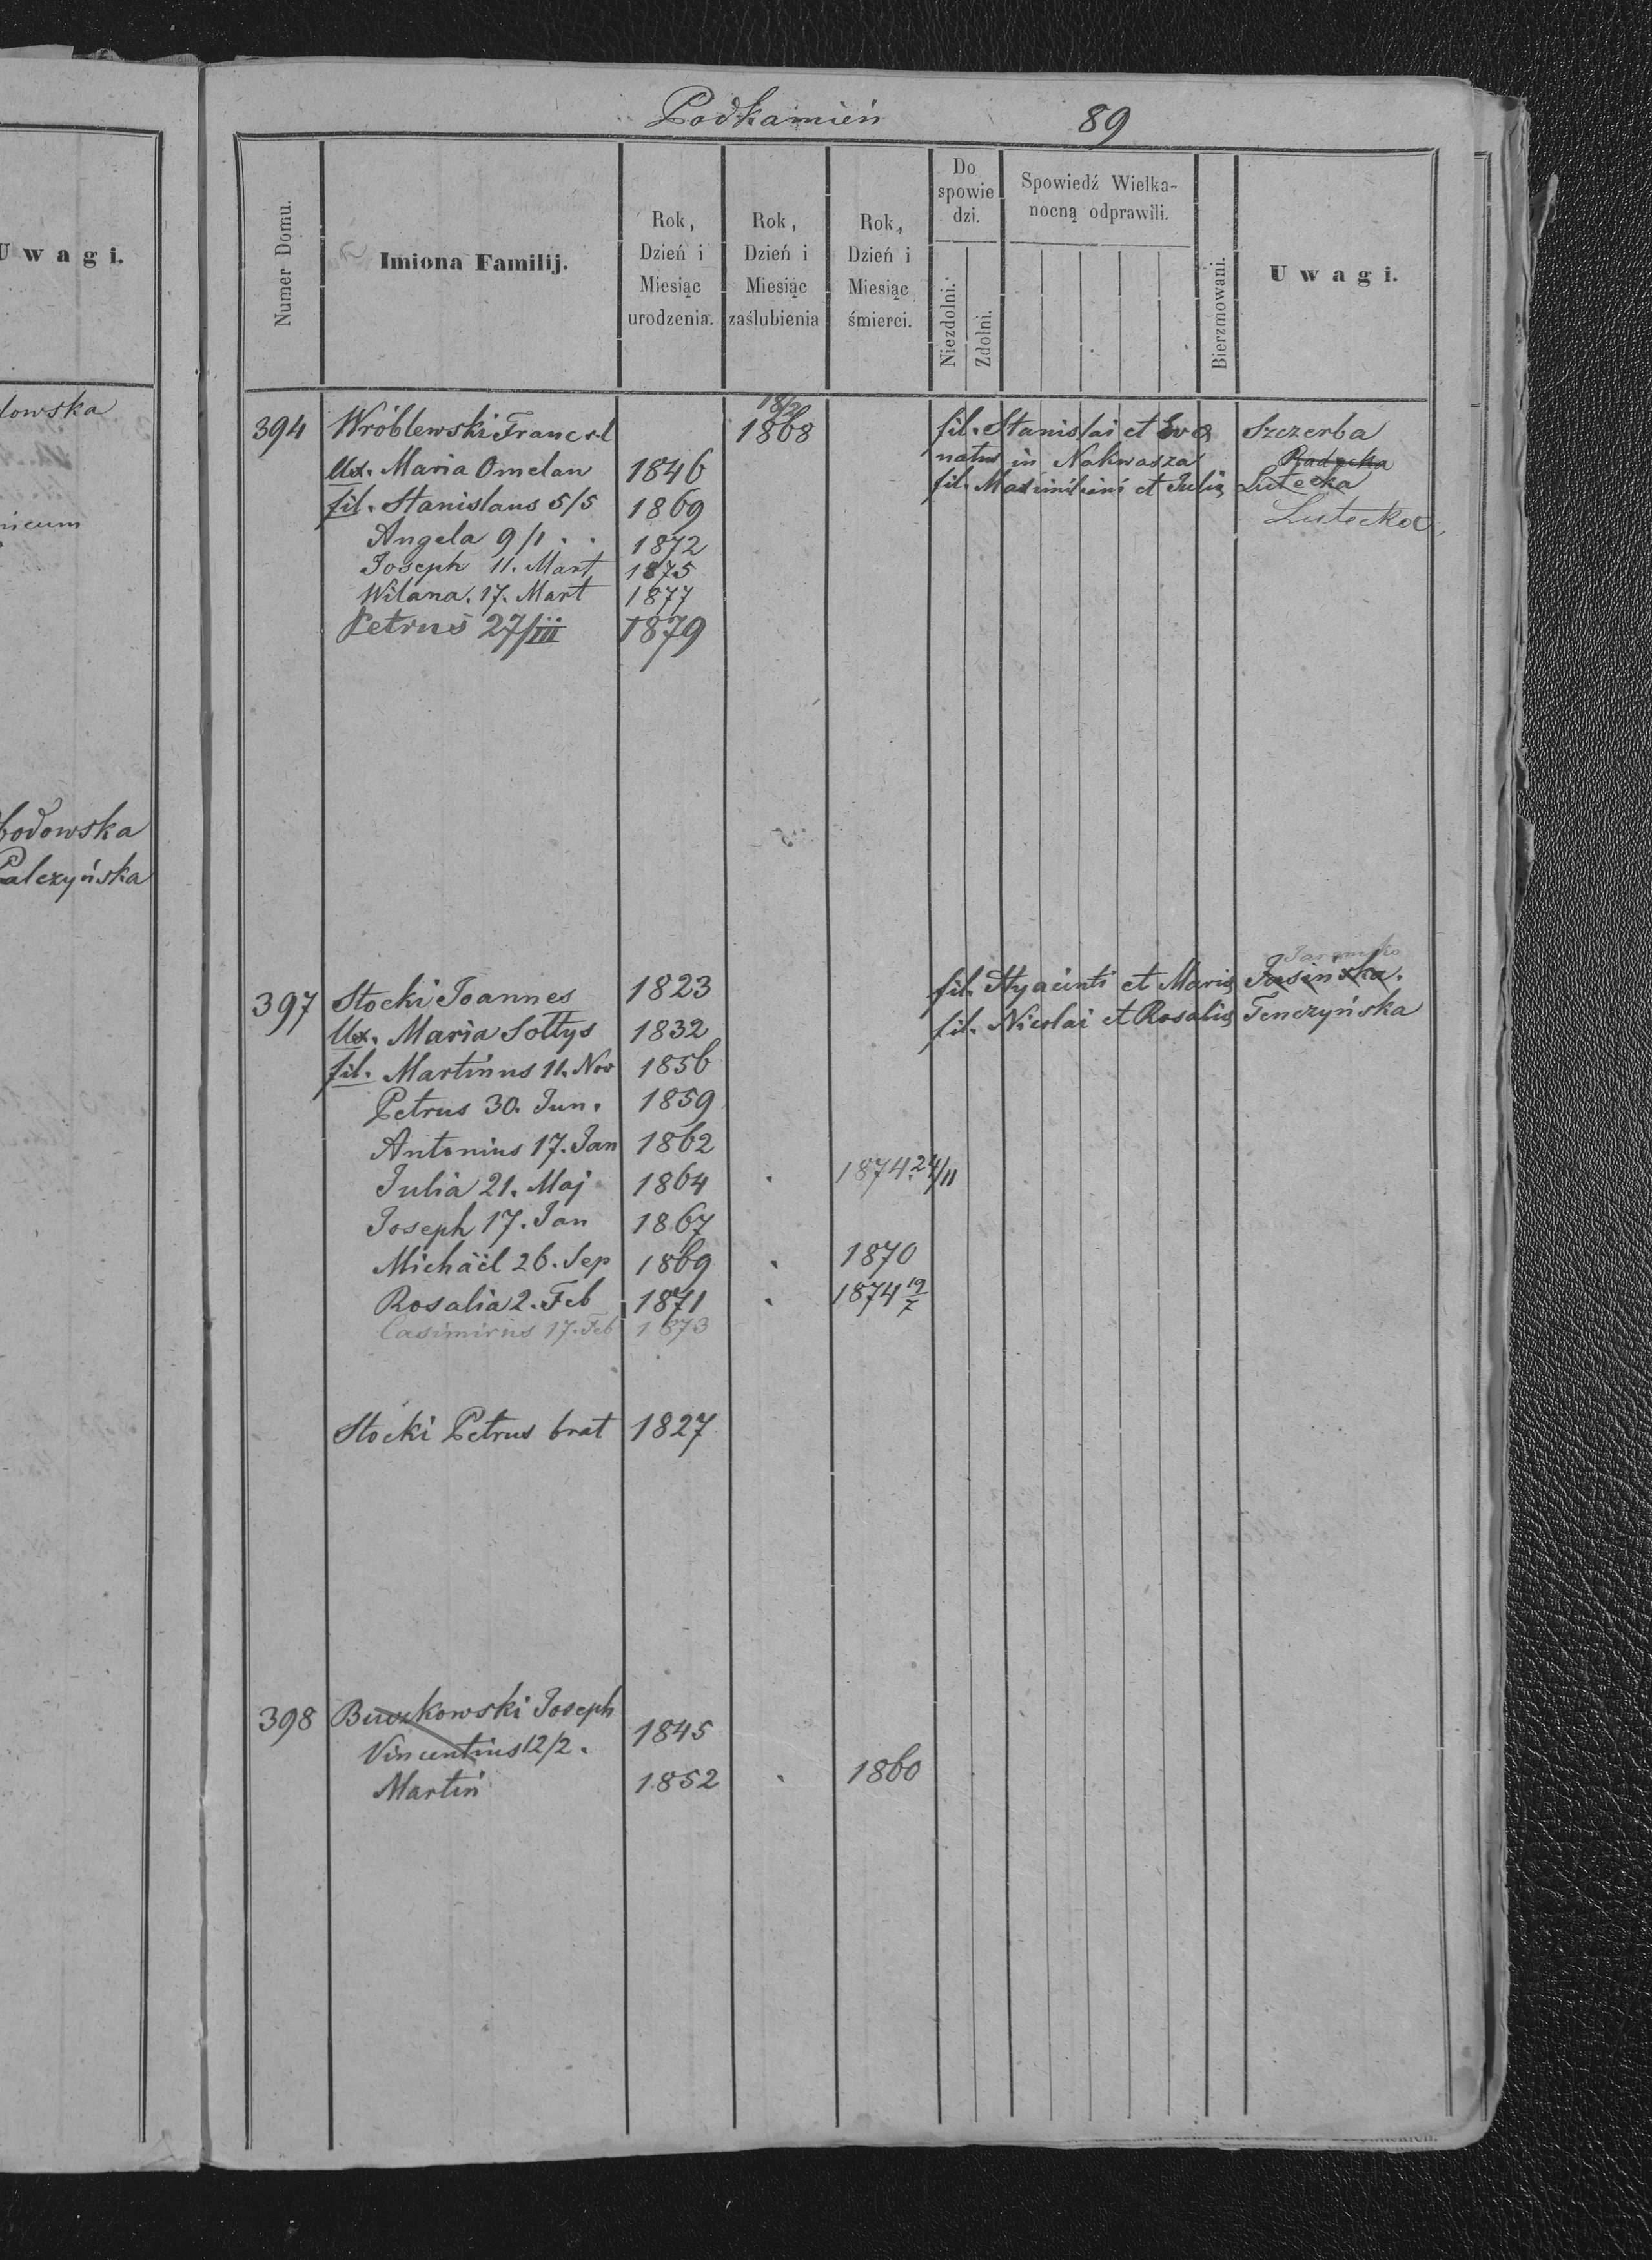 Podkamień 89
Uwagi.
Numer Domu.
Imiona Familij.
Rok, Dzień i Miesiąc urodzenia.
Rok, Dzień i Miesiąc zaślubienia
Rok, Dzień i Miesiąc śmierci.
Do spowie dzi.
Niezdolni.
Zdolni.
Spowiedź Wielka-
nocną odprawili.
Bierzmowani.
Uwagi.
18/2
394 Wróblewski Franc 1868 fil. Stanislai et Eva Szczerba
Ux. Maria Omelan 1846 natus in Nakwasza Radecka
fil. Stanislaus 5/5 1869 fil. Maximiliani et Julia Lutecka
Lutecka
Angela 9/1 . . 1872
Joseph 11. Mart 1875
Wilana. 17. Mart 1877
Petrus 27/III 1879
lowska
nicum
bodowska
Palczyńska
397 Stocki Joannes 1823 fil. Hyacinti et Maria Jasinska.
Ux. Maria Sołtys 1832 fil. Nicolai et Rosalia Tenczyńska
fil. Martinus 11. Nov 1856
Petrus 30. Jun. 1859
Antonius 17. Jan 1862
Julia 21. Maj 1864 . 1874 24/11
Joseph 17. Jan 1867
Michäil 26. Sep 1869 . 1870
Rosalia 2. Feb 1871 . 1874 19/7
Casimirus 17. Feb 1873
Stocki Petrus brat 1827
398 Buczkowski Joseph
Vincentius 12/2. 1845
Martin 1852 . 1860